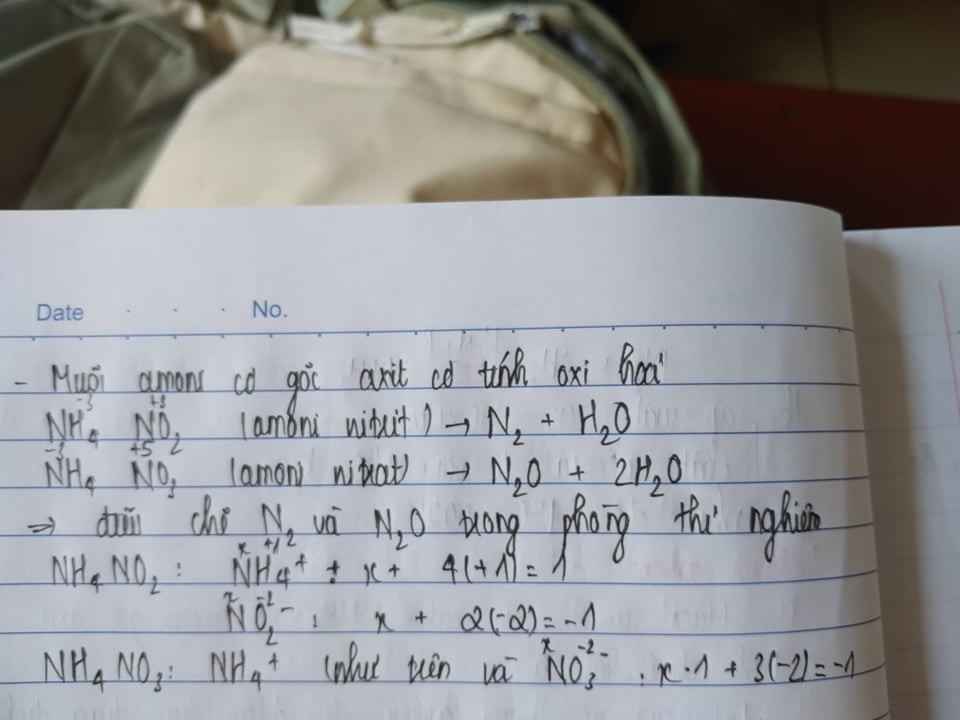 Date . . . No.
- Muối amoni có gốc axit có tính oxi hoá
-3 +3
NH₄ NO₂ (amoni nitrit) → N₂ + H₂O
-3 +5
NH₄ NO₃ (amoni nitrat) → N₂O + 2H₂O
⇒ điều chế N₂ và N₂O trong phòng thí nghiệm
x +1
NH₄NO₂ : NH₄⁺ : x + 4(+1) = 1
x -2
NO₂⁻ : x + 2(-2) = -1
x -2
NH₄NO₃ : NH₄⁺ (như trên và NO₃⁻ : x·1 + 3(-2) = -1